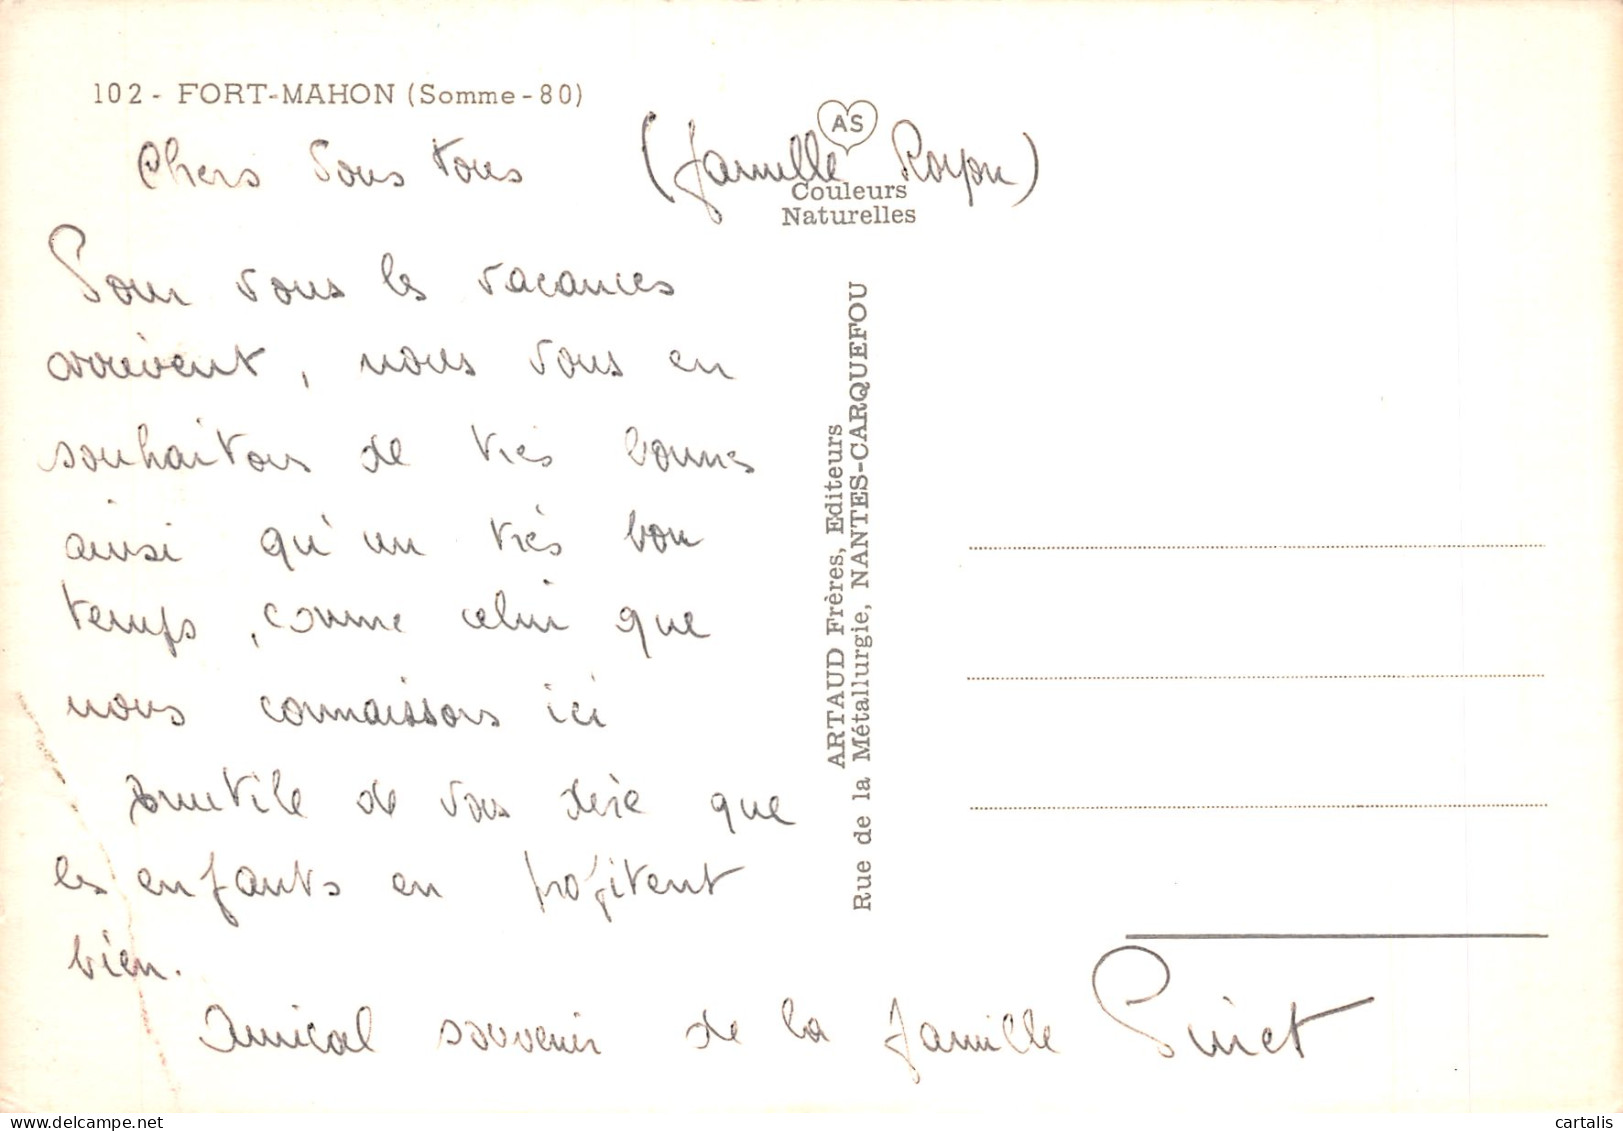 102 - FORT-MAHON (Somme - 80)
AS
Couleurs
Naturelles
Chers Vous tous (famille Royon)
Pour vous les vacances
arrivent, nous vous en
souhaitons de très bonnes
ainsi qu'un très bon
temps, comme celui que
nous connaissons ici
Inutile de vous dire que
les enfants en profitent
bien.
Amical souvenir de la famille
ARTAUD Frères, Editeurs
Rue de la Métallurgie, NANTES-CARQUEFOU
cartalis